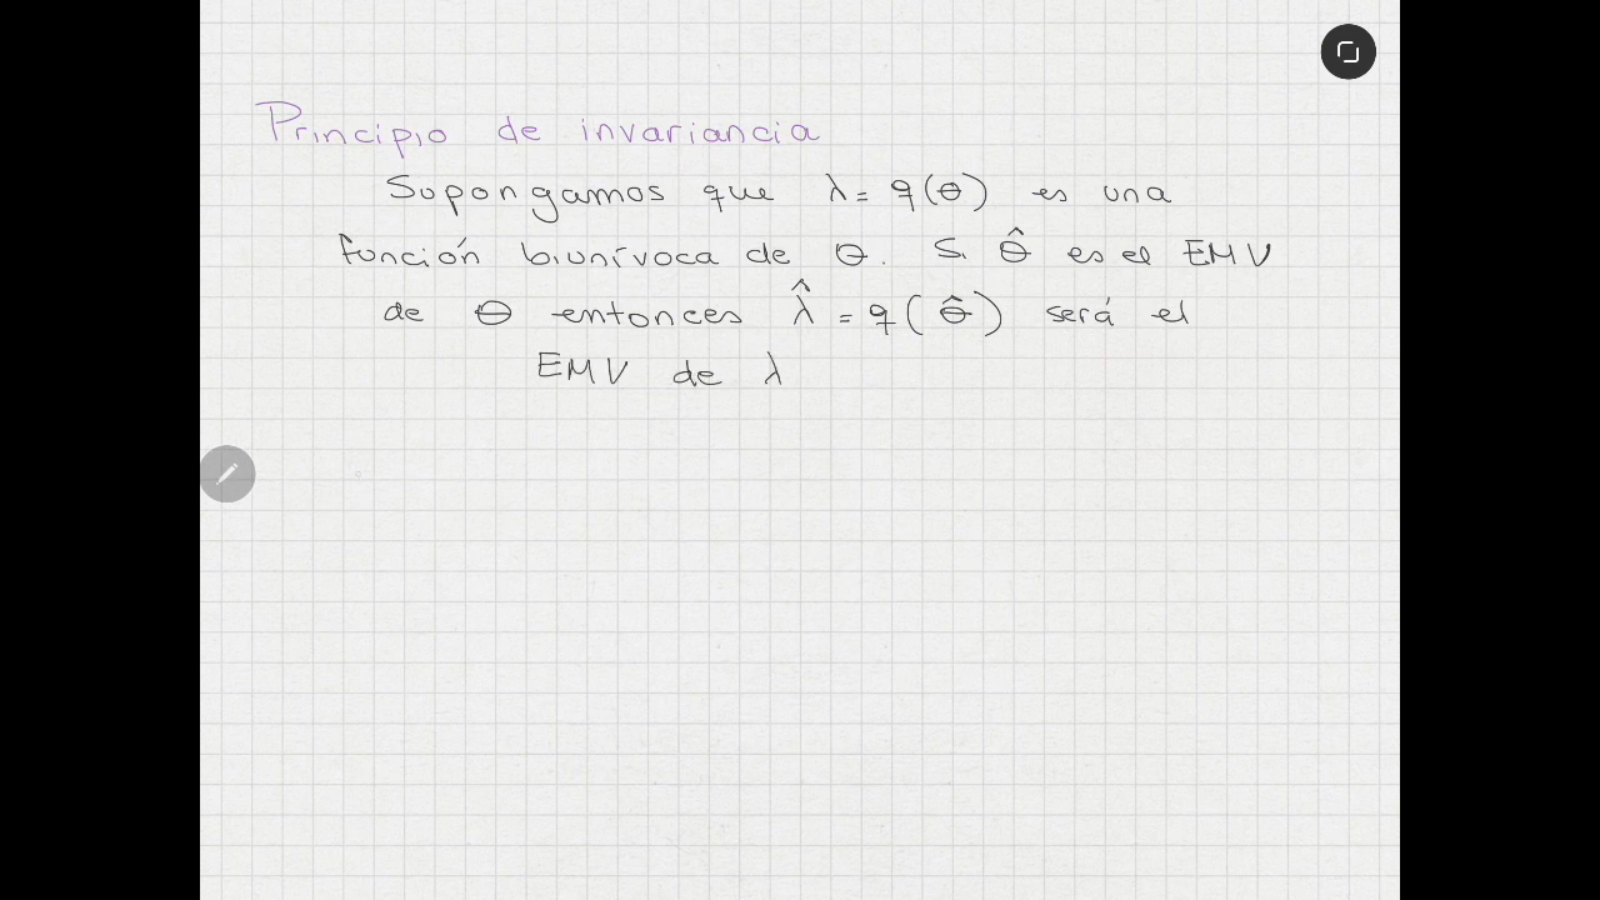 Principio de invariancia
Supongamos que λ = q(θ) es una
función biunívoca de θ. Si θ̂ es el EMV
de θ entonces λ̂ = q(θ̂) será el
EMV de λ